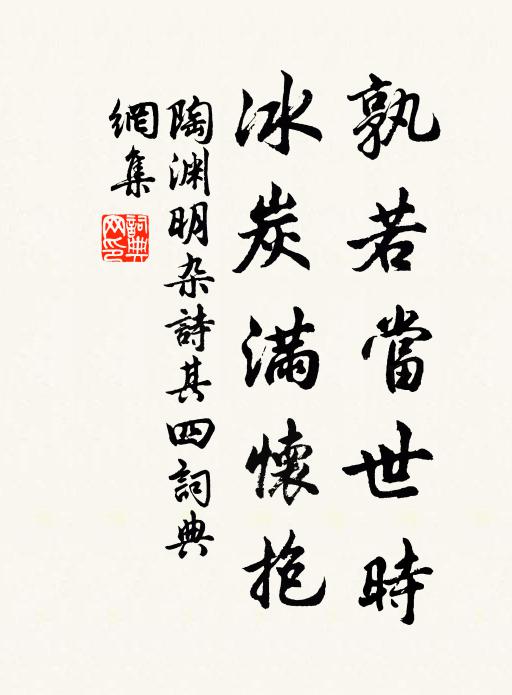 孰若當世時
冰炭滿懷抱
陶渊明杂詩其四詞典
網集
詞典
网印